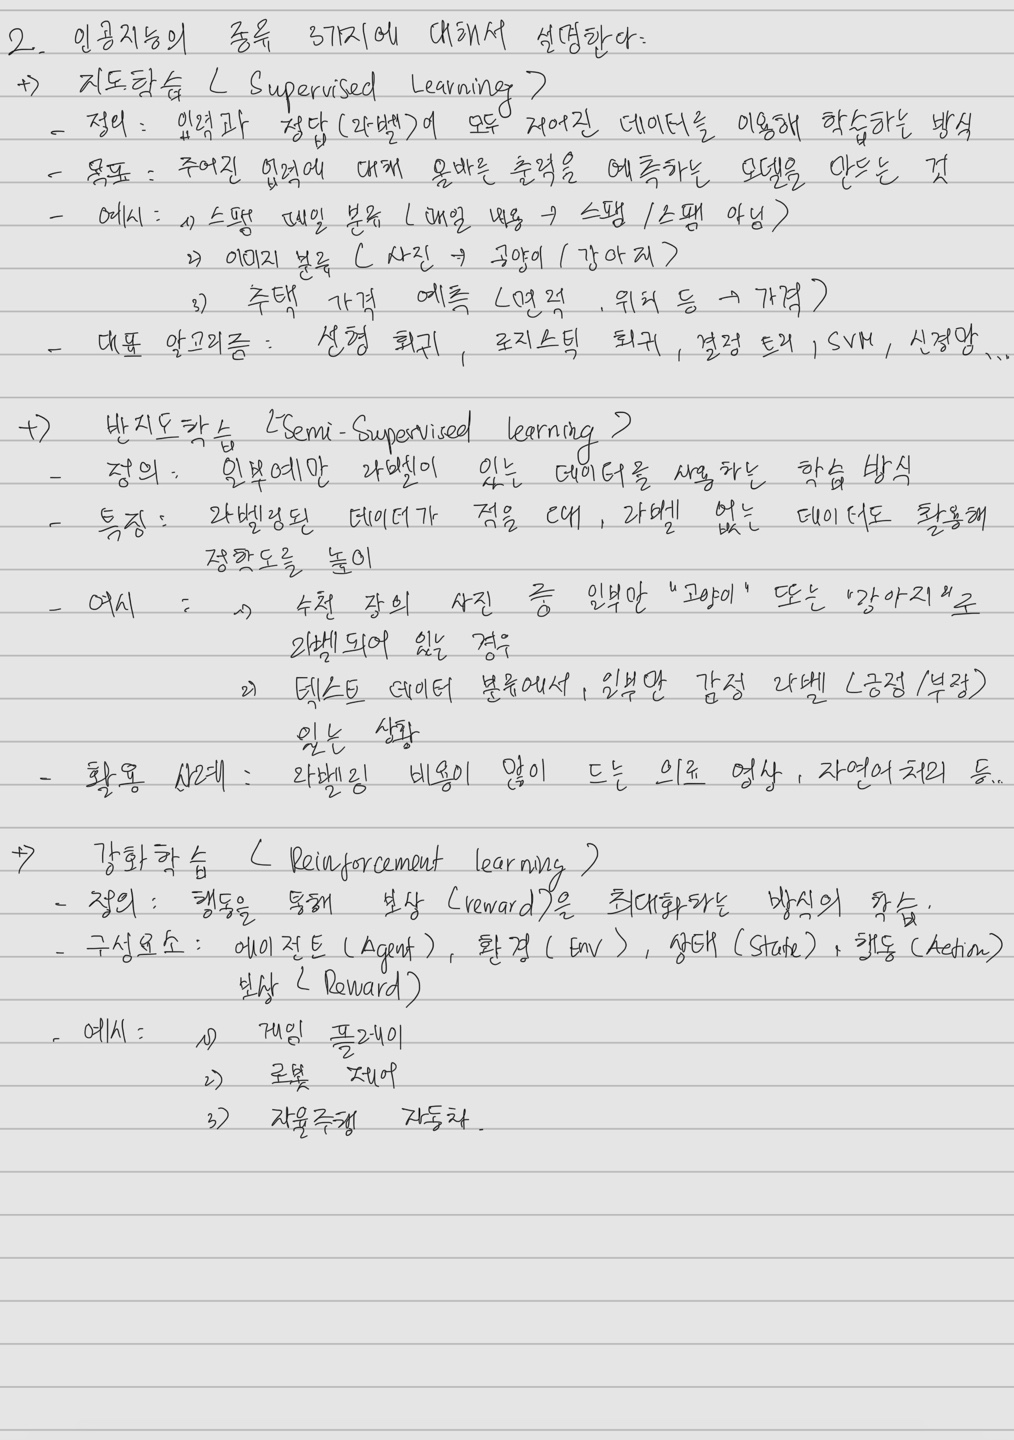 2. 인공지능의 종류 3가지에 대해서 설명한다.
+) 지도학습 ( Supervised Learning )
- 정의 : 입력과 정답(라벨)이 모두 주어진 데이터를 이용해 학습하는 방식
- 목표 : 주어진 입력에 대해 올바른 출력을 예측하는 모델을 만드는 것
- 예시 : 1) 스팸 메일 분류 ( 메일 내용 → 스팸 / 스팸 아님 )
2) 이미지 분류 ( 사진 → 고양이 / 강아지 )
3) 주택 가격 예측 ( 면적 , 위치 등 → 가격 )
- 대표 알고리즘 : 선형 회귀 , 로지스틱 회귀 , 결정 트리 , SVM , 신경망 ...
+) 반지도학습 ( Semi-Supervised learning )
- 정의 : 일부에만 라벨이 있는 데이터를 사용하는 학습 방식
- 특징 : 라벨링된 데이터가 적을 때 , 라벨 없는 데이터도 활용해
정확도를 높이
- 예시 : 1) 수천 장의 사진 중 일부만 "고양이" 또는 "강아지"로
라벨되어 있는 경우
2) 텍스트 데이터 분류에서 , 일부만 감정 라벨 (긍정 / 부정)
있는 상황
- 활용 사례 : 라벨링 비용이 많이 드는 의료 영상 , 자연어처리 등..
+) 강화학습 ( Reinforcement learning )
- 정의 : 행동을 통해 보상 (reward)을 최대화하는 방식의 학습.
- 구성요소 : 에이전트 (Agent) , 환경 ( Env ) , 상태 (State) , 행동 (Action)
보상 ( Reward )
- 예시 : 1) 게임 플레이
2) 로봇 제어
3) 자율주행 자동차.